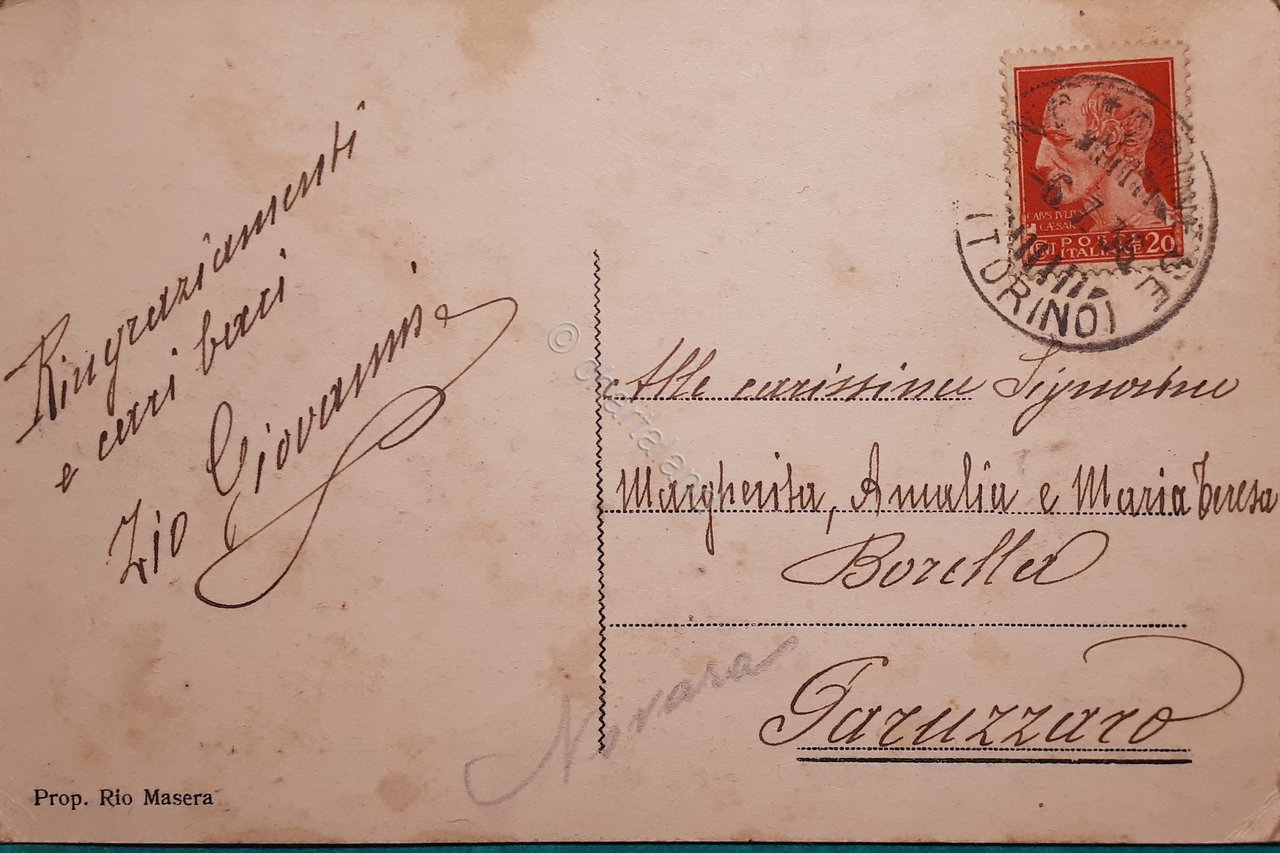 Ringraziamenti
e cari baci
Zio Giovanni
Alle carissime Signorine
Margherita, Amalia e Maria Teresa
Borella
Paruzzaro
Novara
Prop. Rio Masera
CAIVS IVLIVS
CAESAR
POSTE
ITALIANE
20
-6.7.
(TORINO)
© chartaland